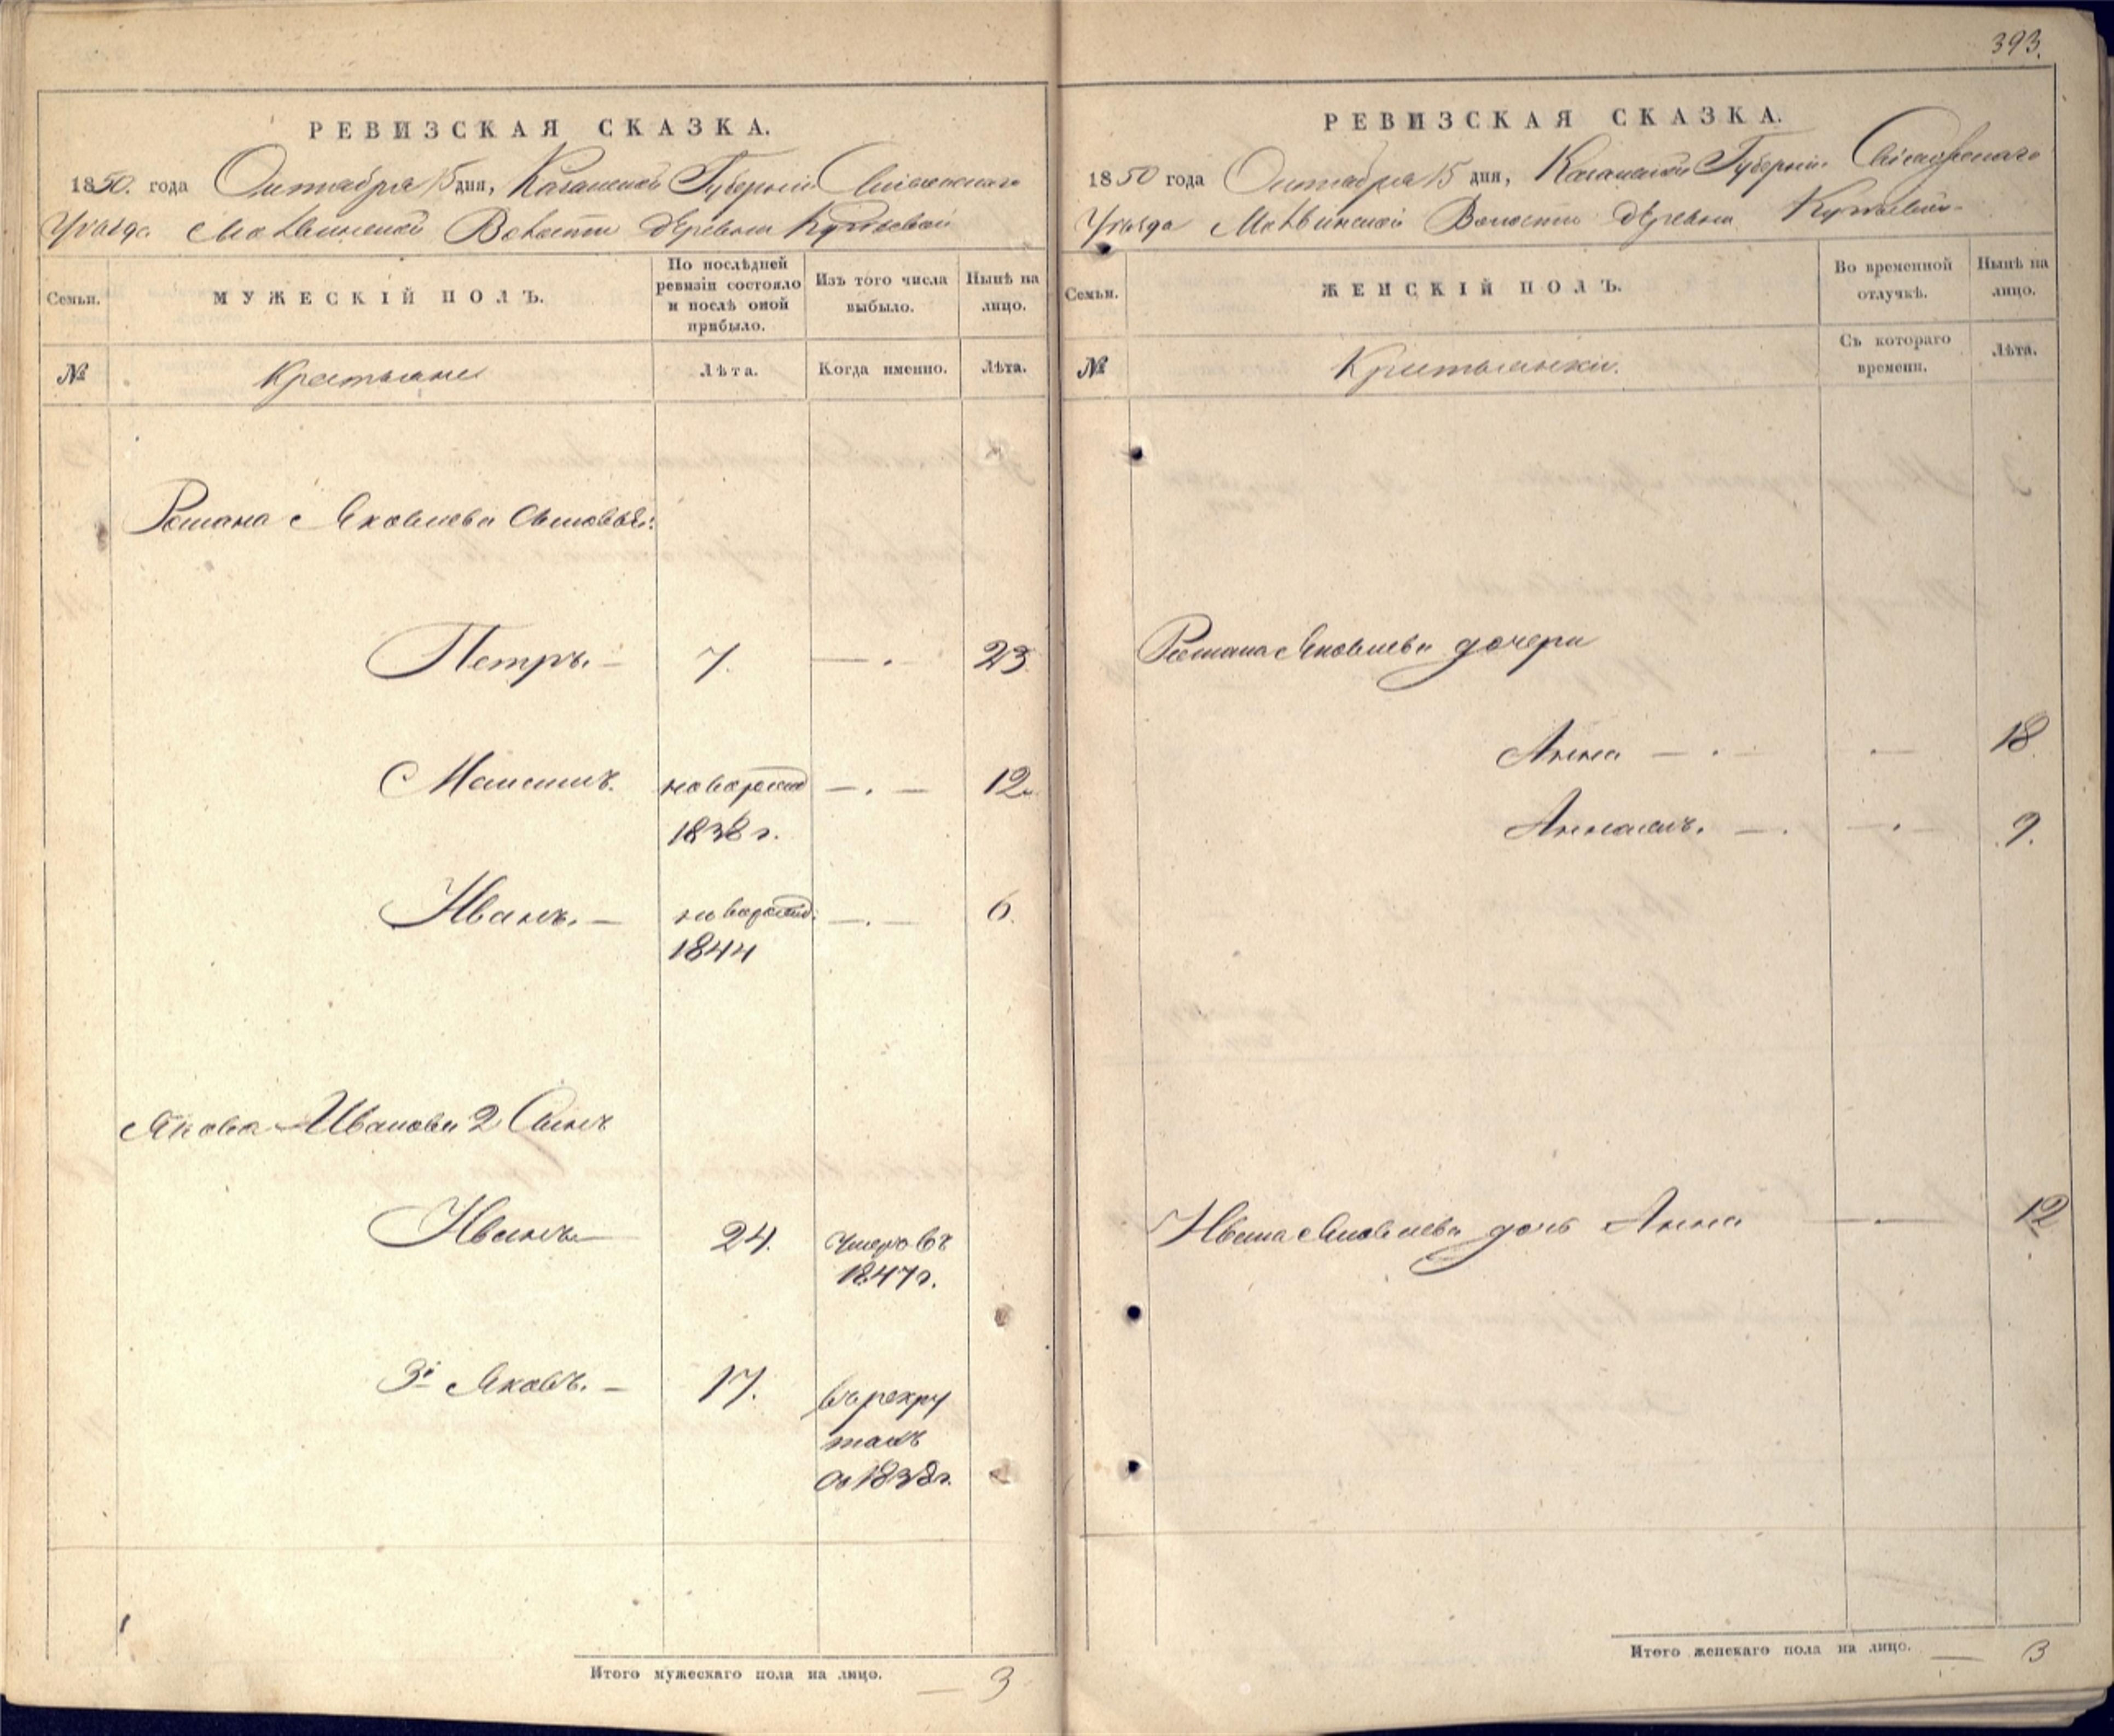 393.
РЕВИЗСКАЯ СКАЗКА.
1850. года Октября 15 дня, Казанской Губернии Свіяжскаго
Уѣзда Волости деревни
Семьи.
МУЖЕСКІЙ ПОЛЪ.
По послѣдней ревизіи состояло и послѣ оной прибыло.
Изъ того числа выбыло.
Нынѣ на лицо.
№
Крестьяне
Лѣта.
Когда именно.
Лѣта.
Романа Яковлева сыновья:
Петръ. — 7. — . — 23.
Максимъ. новорожд — . — 12.
1838 г.
Иванъ. — новорожд. — . — 6.
1844
Якова Иванова 2 Сынъ
Иванъ — 24. умеръ въ
1847 г.
3й Яковъ. — 17. въ рекру
тахъ
съ 1838 г.
Итого мужескаго пола на лицо. — 3
РЕВИЗСКАЯ СКАЗКА.
1850 года Октября 15 дня, Казанской Губерніи Свіяжскаго
Уѣзда Волости деревни
Семьи.
ЖЕНСКІЙ ПОЛЪ.
Во временной отлучкѣ.
Нынѣ на лицо.
№
Крестьянки.
Съ котораго времени.
Лѣта.
Романа Яковлева дочери
Анна — . — . — 18
— . — . — 9.
Ивана Яковлева дочь Анна — . — 12
Итого женскаго пола на лицо. — 3